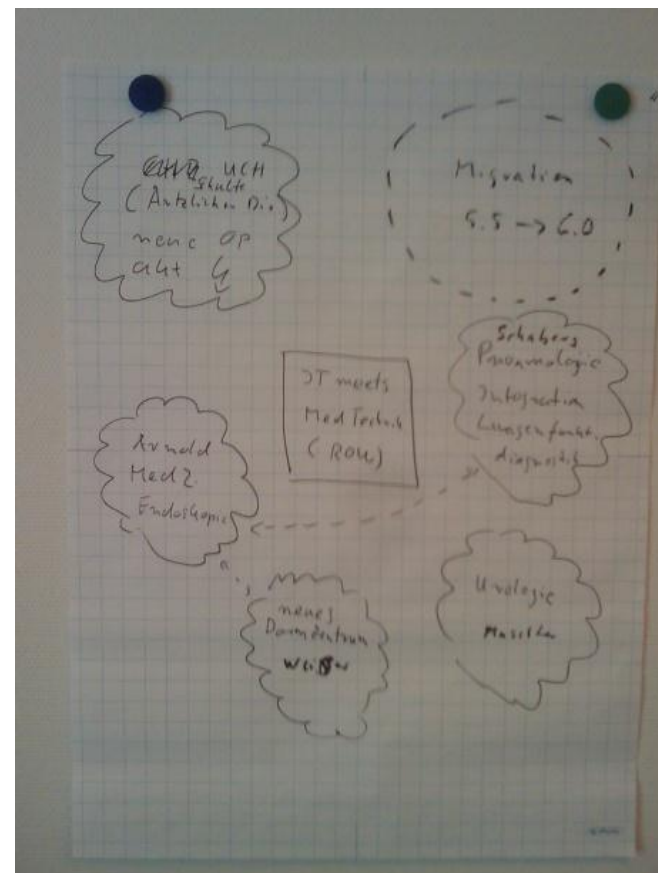 UCH
Schulte
(Ärztlicher Dir.)
neue OP
akt
Migration
5.5 -> 6.0
Schaberg
Pneumologie
Integration
Lungenfunkt.
diagnostik
IT meets
MedTechnik
(ROW)
Arnold
Med 2.
Endoskopie
neues
Darmzentrum
Urologie